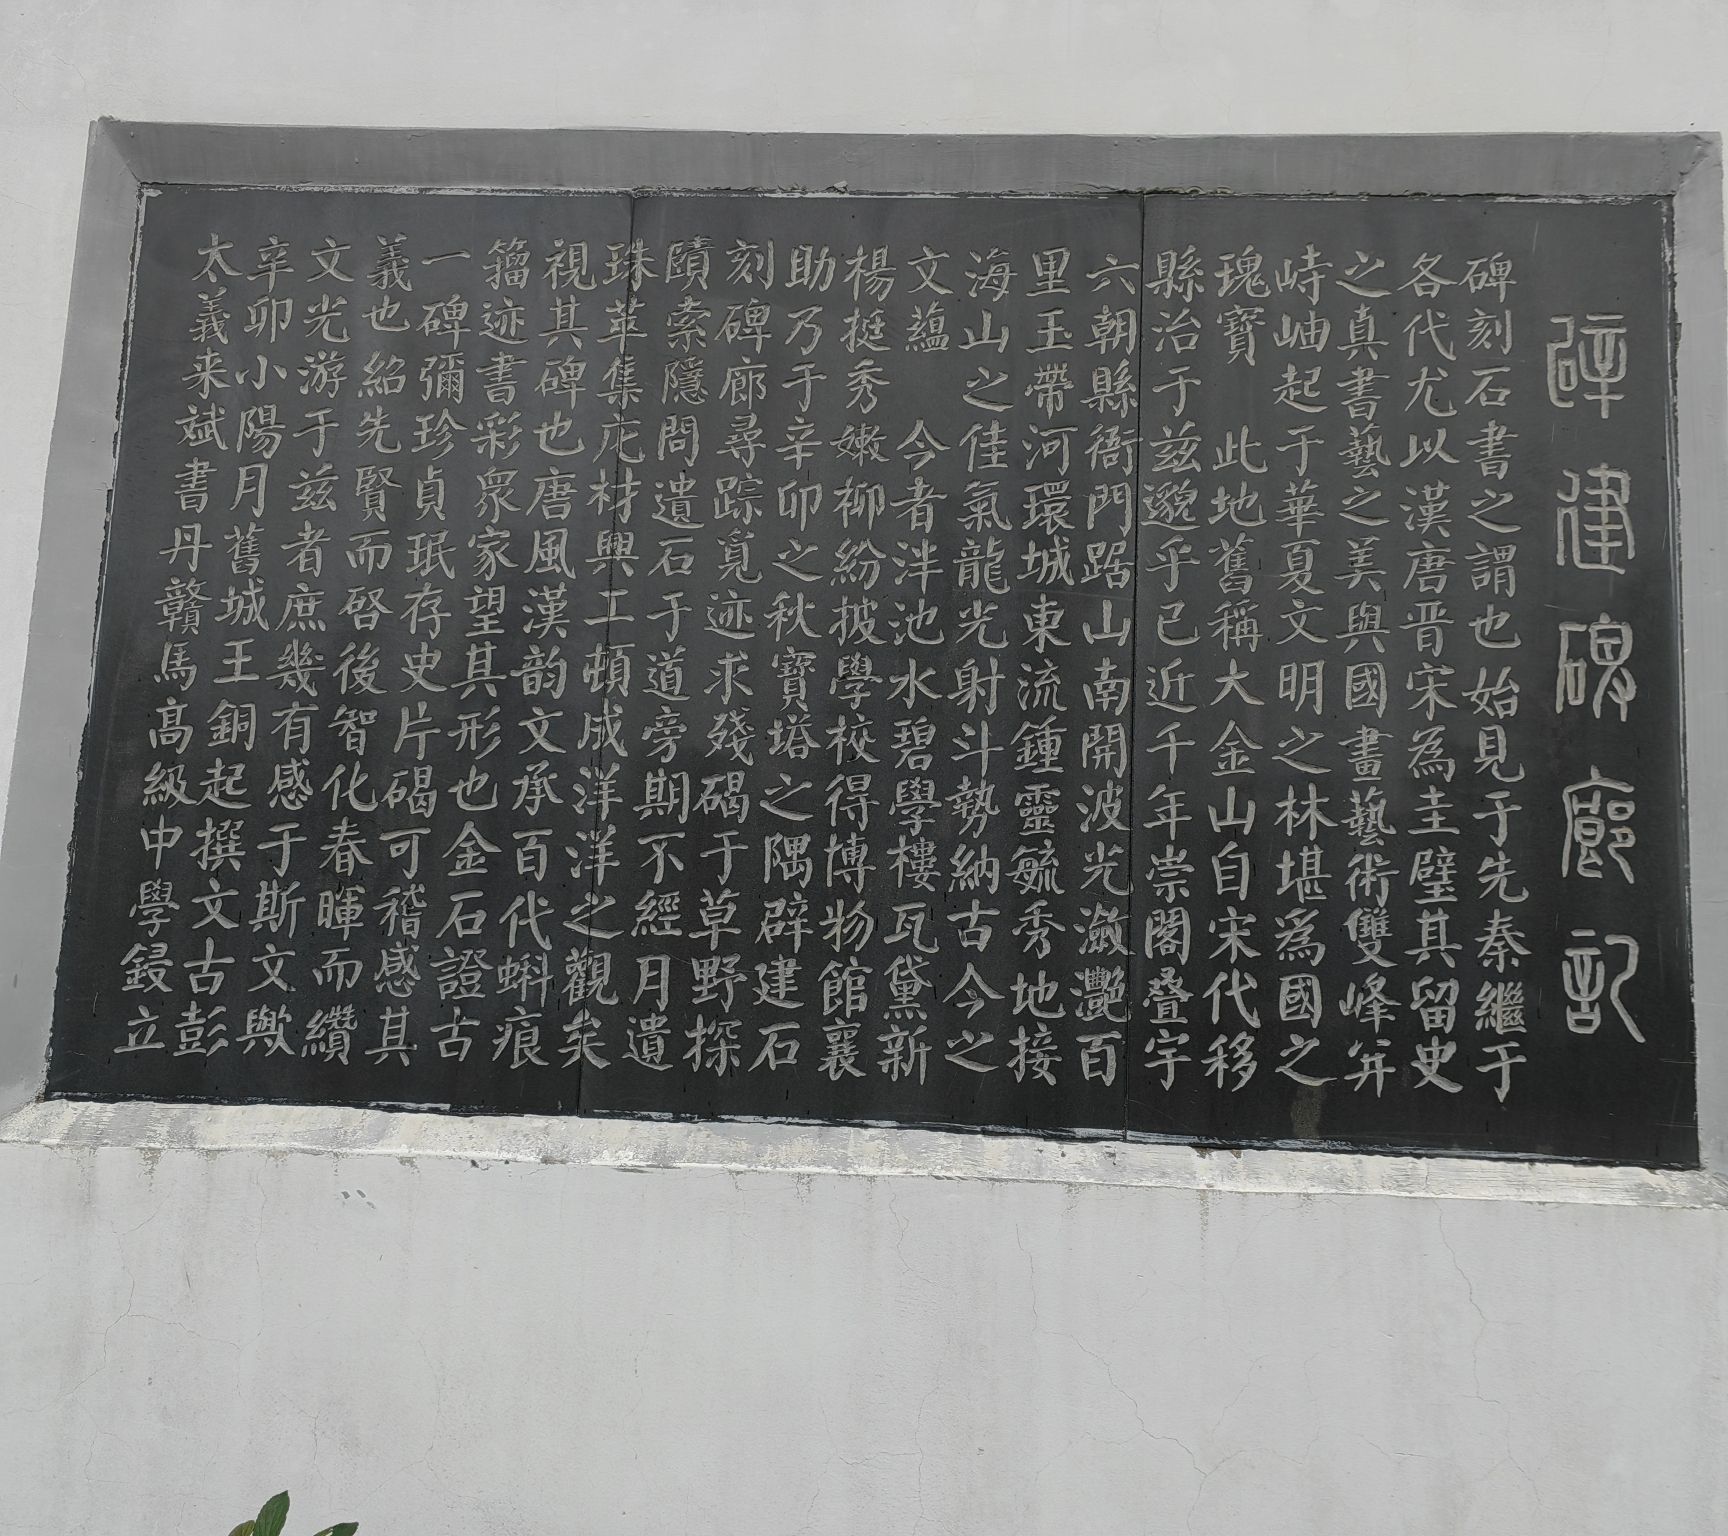 辟建碑廊記
碑刻石書之謂也始見于先秦繼于
各代尤以漢唐晋宋為圭璧其留史
之真書藝之美與國畫藝術雙峰并
峙岫起于華夏文明之林堪為國之
瑰寶 此地舊稱大金山自宋代移
縣治于兹邈乎已近千年崇閣叠宇
六朝縣衙門踞山南開波光瀲灩百
里玉帶河環城東流鍾靈毓秀地接
海山之佳氣龍光射斗勢納古今之
文蘊 今者泮池水碧學樓瓦黛新
楊挺秀嫩柳紛披學校得博物館襄
助乃于辛卯之秋寶塔之隅辟建石
刻碑廊尋踪覓迹求殘碣于草野探
賾索隱問遺石于道旁期不經月遺
珠萃集庀材興工頓成洋洋之觀矣
視其碑也唐風漢韵文承百代蝌痕
籀迹書彩衆家望其形也金石證古
一碑彌珍貞珉存史片碣可稽感其
義也紹先賢而啓後智化春暉而纘
文光游于兹者庶幾有感于斯文歟
辛卯小陽月舊城王銅起撰文古彭
太義来斌書丹贛馬高級中學鋟立